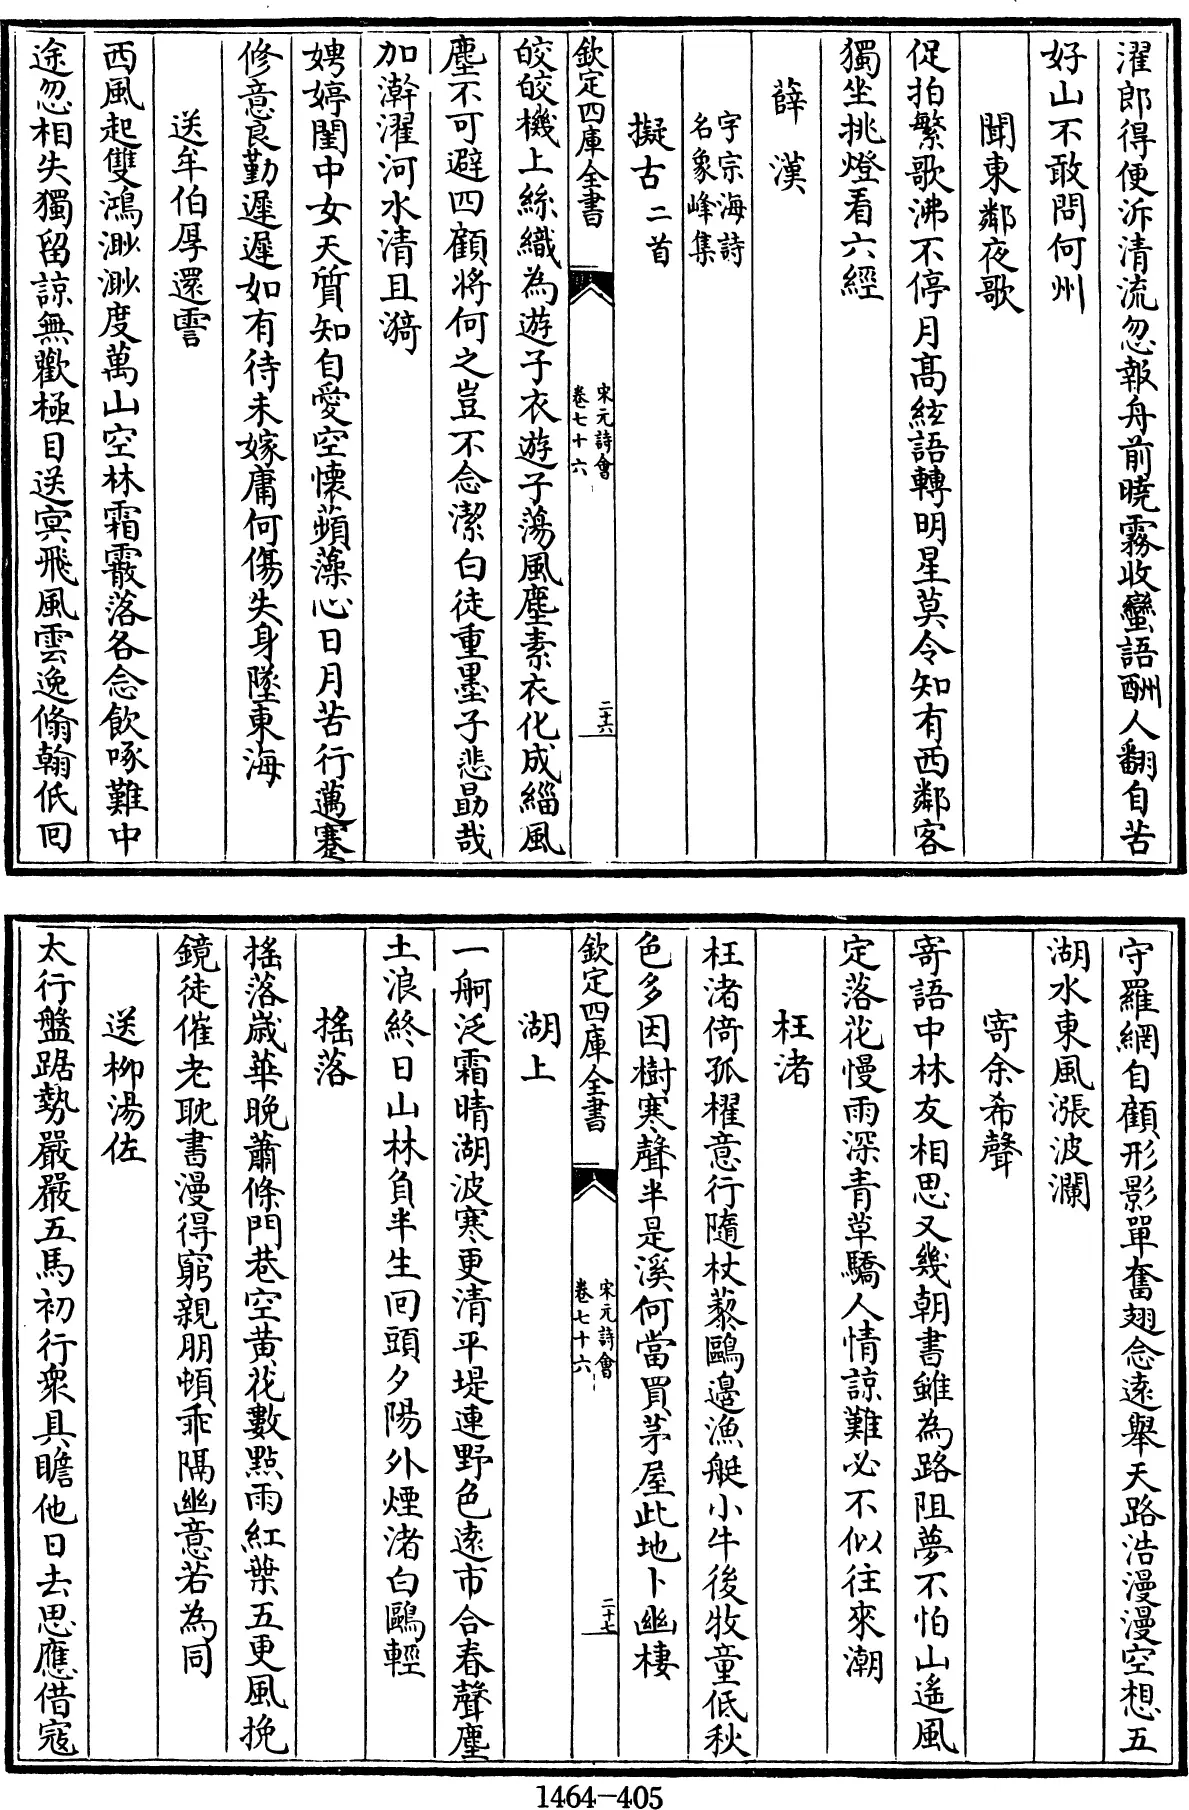 濯郎得便泝清流忽報舟前曉霧收蠻語酬人翻自苦
好山不敢問何州
聞東鄰夜歌
促拍繁歌沸不停月髙絃語轉明星莫令知有西鄰客
獨坐挑燈看六經
薛漢
字宗海詩
名象峰集
擬古二首
欽定四庫全書
宋元詩會
卷七十六
二十六
皎皎機上絲織為遊子衣遊子蕩風塵素衣化成緇風
塵不可避四顧將何之豈不念潔白徒重墨子悲勗哉
加澣濯河水清且漪
娉婷閨中女天質知自愛空懐蘋藻心日月苦行邁蹇
修意良勤遲遲如有待未嫁庸何傷失身墜東海
送牟伯厚還霅
西風起雙鴻渺渺度萬山空林霜霰落各念飲啄難中
途忽相失獨留諒無歡極目送㝠飛風雲逸翛翰低回
守羅網自顧形影單奮翅念逺舉天路浩漫漫空想五
湖水東風漲波瀾
寄余希聲
寄語中林友相思又幾朝書雖為路阻夢不怕山遙風
定落花慢雨深青草驕人情諒難必不似往來潮
枉渚
枉渚倚孤櫂意行隨杖藜鷗邊漁艇小牛後牧童低秋
色多因樹寒聲半是溪何當買茅屋此地卜幽棲
欽定四庫全書
宋元詩會
卷七十六
二十七
湖上
一舸泛霜晴湖波寒更清平堤連野色逺市合春聲塵
土浪終日山林負半生回頭夕陽外煙渚白鷗輕
搖落
搖落歲華晚蕭條門巷空黄花數點雨紅葉五更風挽
鏡徒催老耽書漫得窮親朋頓乖隔幽意若為同
送柳湯佐
太行盤踞勢嚴嚴五馬初行衆具瞻他日去思應借寇
1464-405